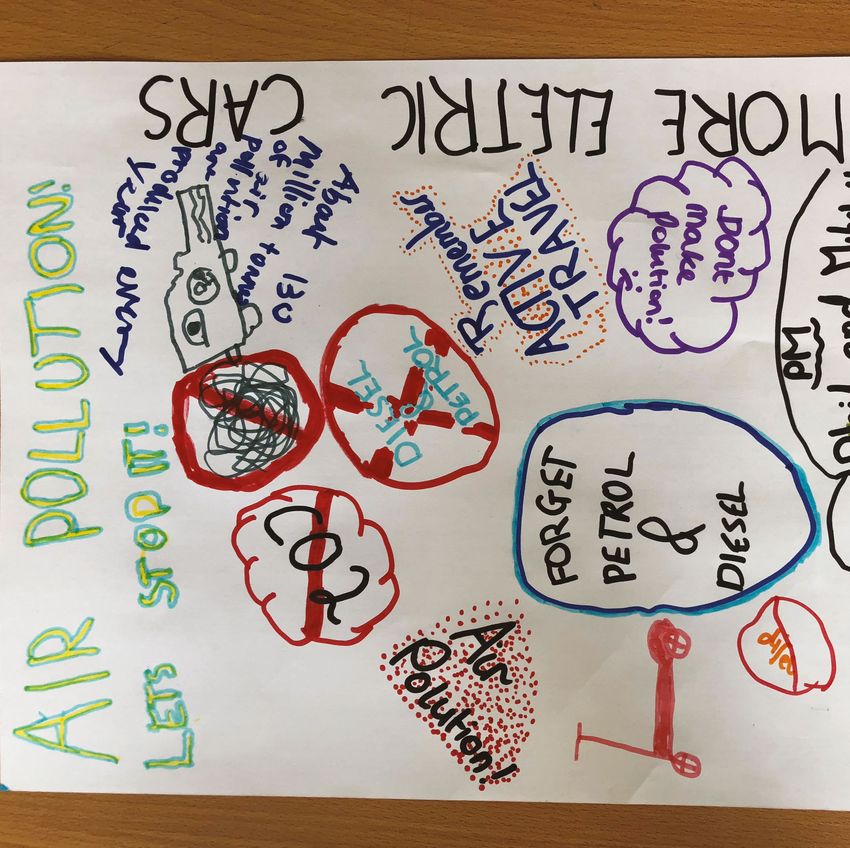 AIR POLLUTION!
LETS STOP IT!
About 130
million tonnes
of air
pollution
are
produced every
year
CO2
DIESEL
PETROL
Air
Polution!
Remember
ACTIVE
TRAVEL
FORGET
PETROL
&
DIESEL
DONt
make
Polution!
PM
MORE ELETRIC CARS